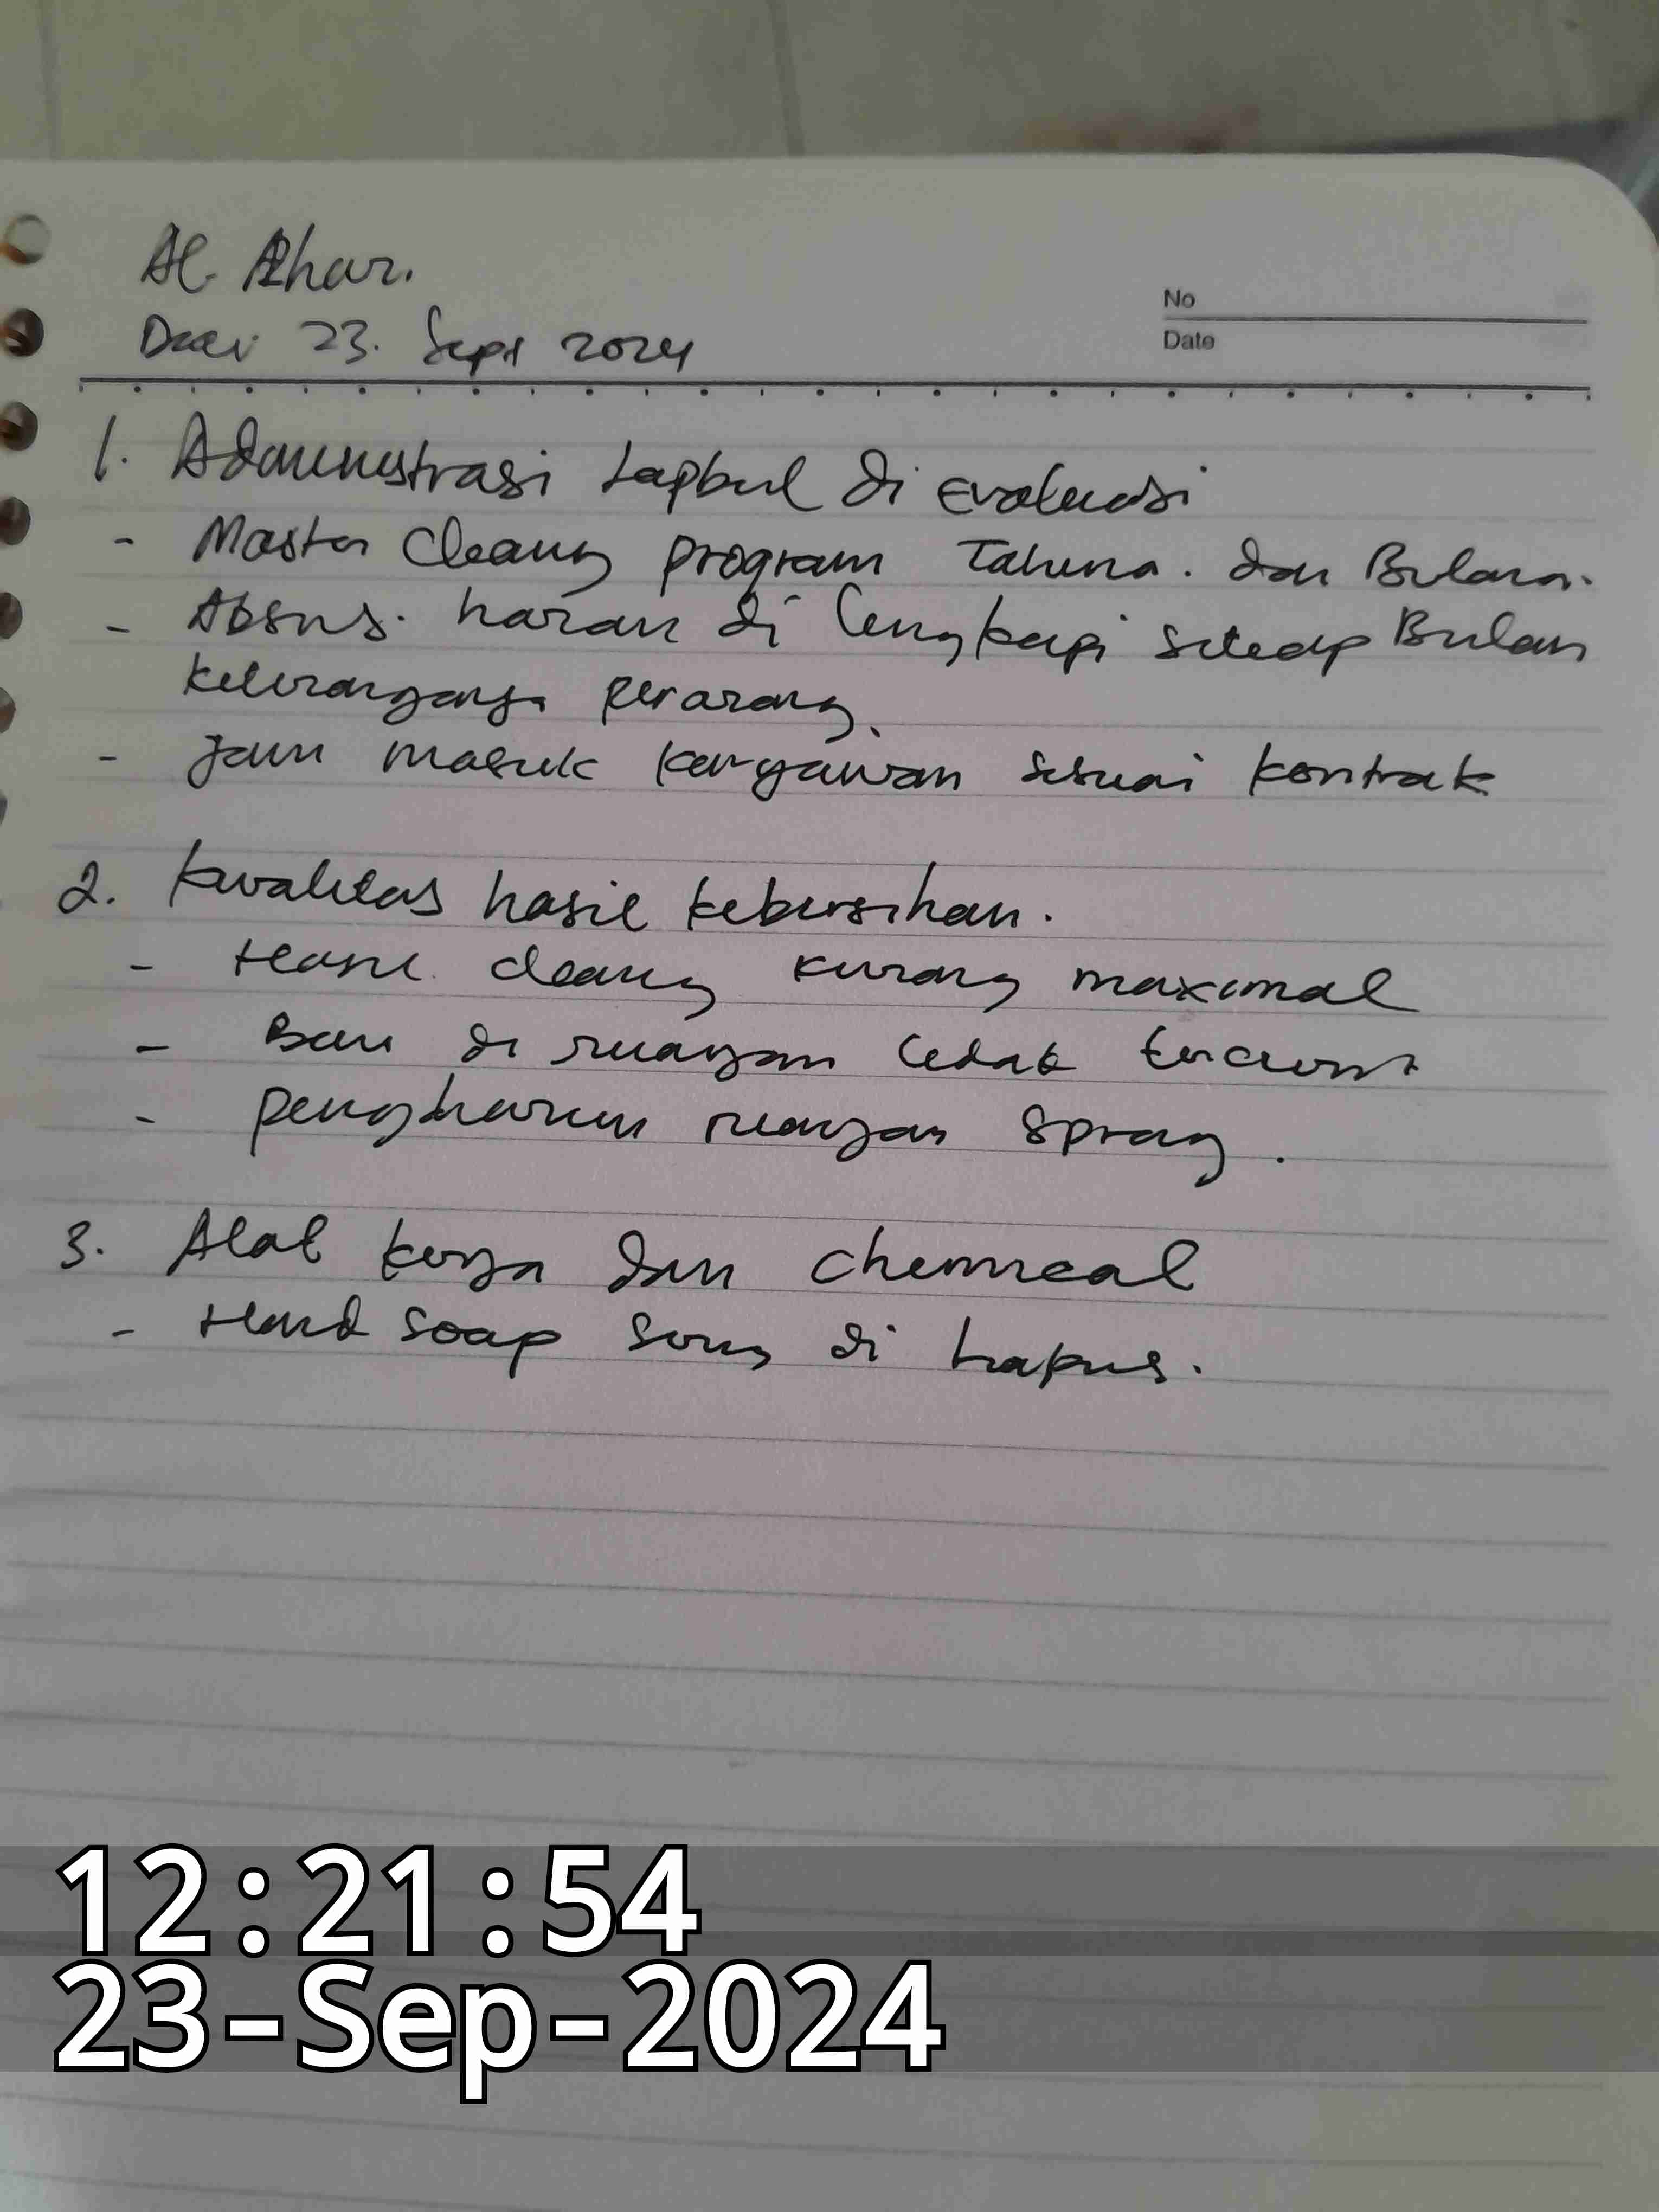 Al Azhar.
23. Sept 2024
No
Date
1. Administrasi Lapbul di Evaluasi
- Master Cleaning program Tahuna. dan Bulana.
- Absns. harian di lengkapi setiap Bulan
keterangannya perorang.
- Jam masuk karyawan sesuai kontrak
2. kwalitas hasil kebersihan.
- Hasil cleaning kurang maximal
- Bau di ruangan tidak tercium
- pengharum ruangan spray.
3. Alat kerja dan chemical
- Hand soap sering di hapus.
12:21:54
23-Sep-2024